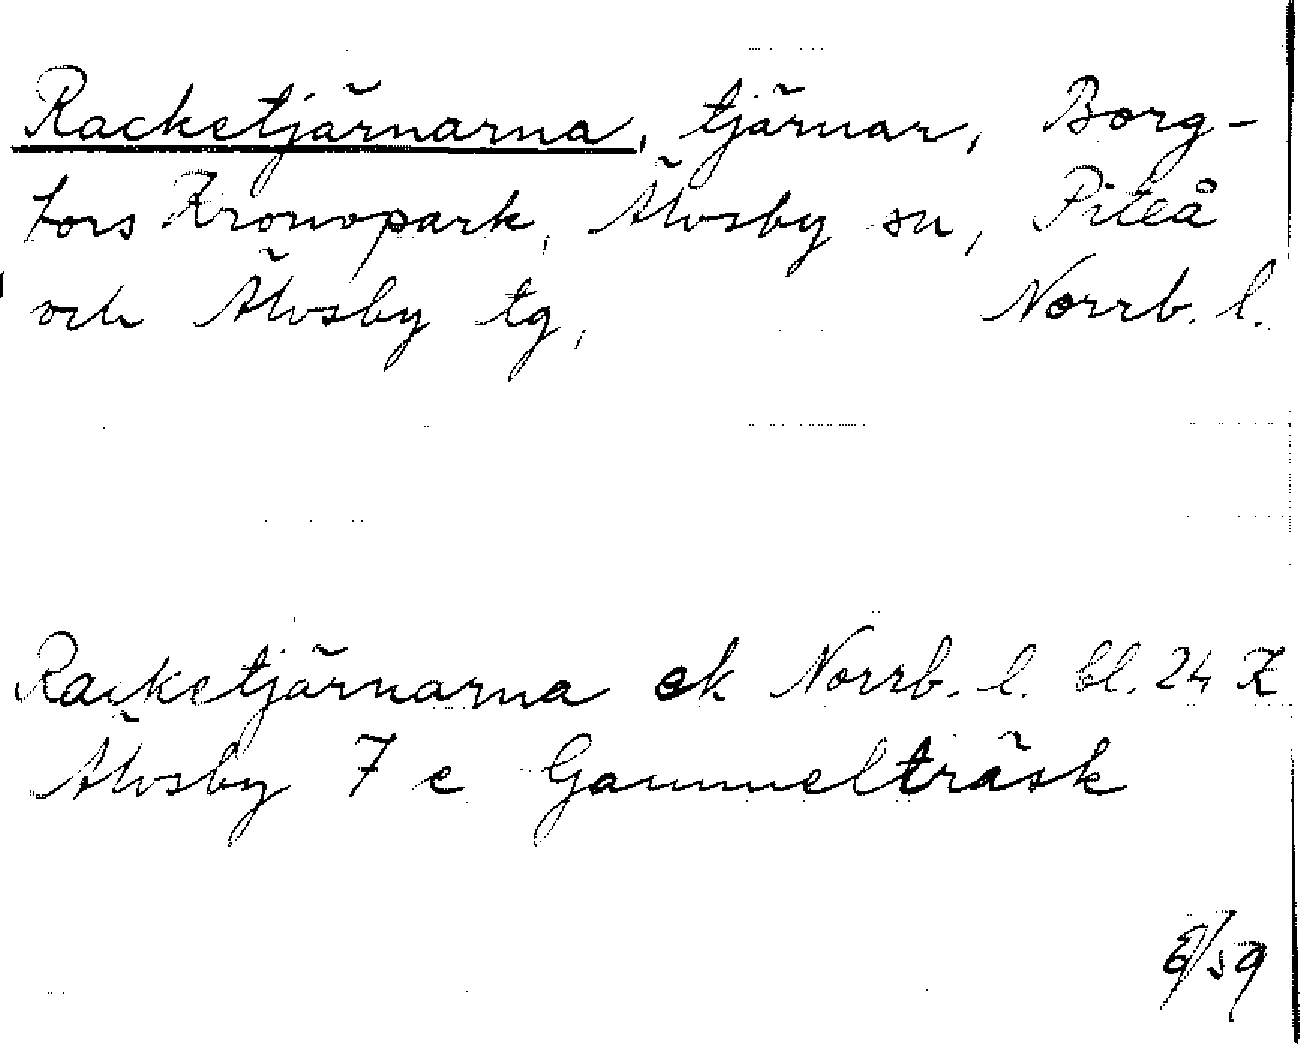 Racketjärnarna, tjärnar, Borg-
fors Kronopark, Älvsby sn, Piteå
och Älvsby tg, Norrb. l.
Racketjärnarna ek Norrb. l. bl. 24 K
Älvsby 7 e Gammelträsk
/59